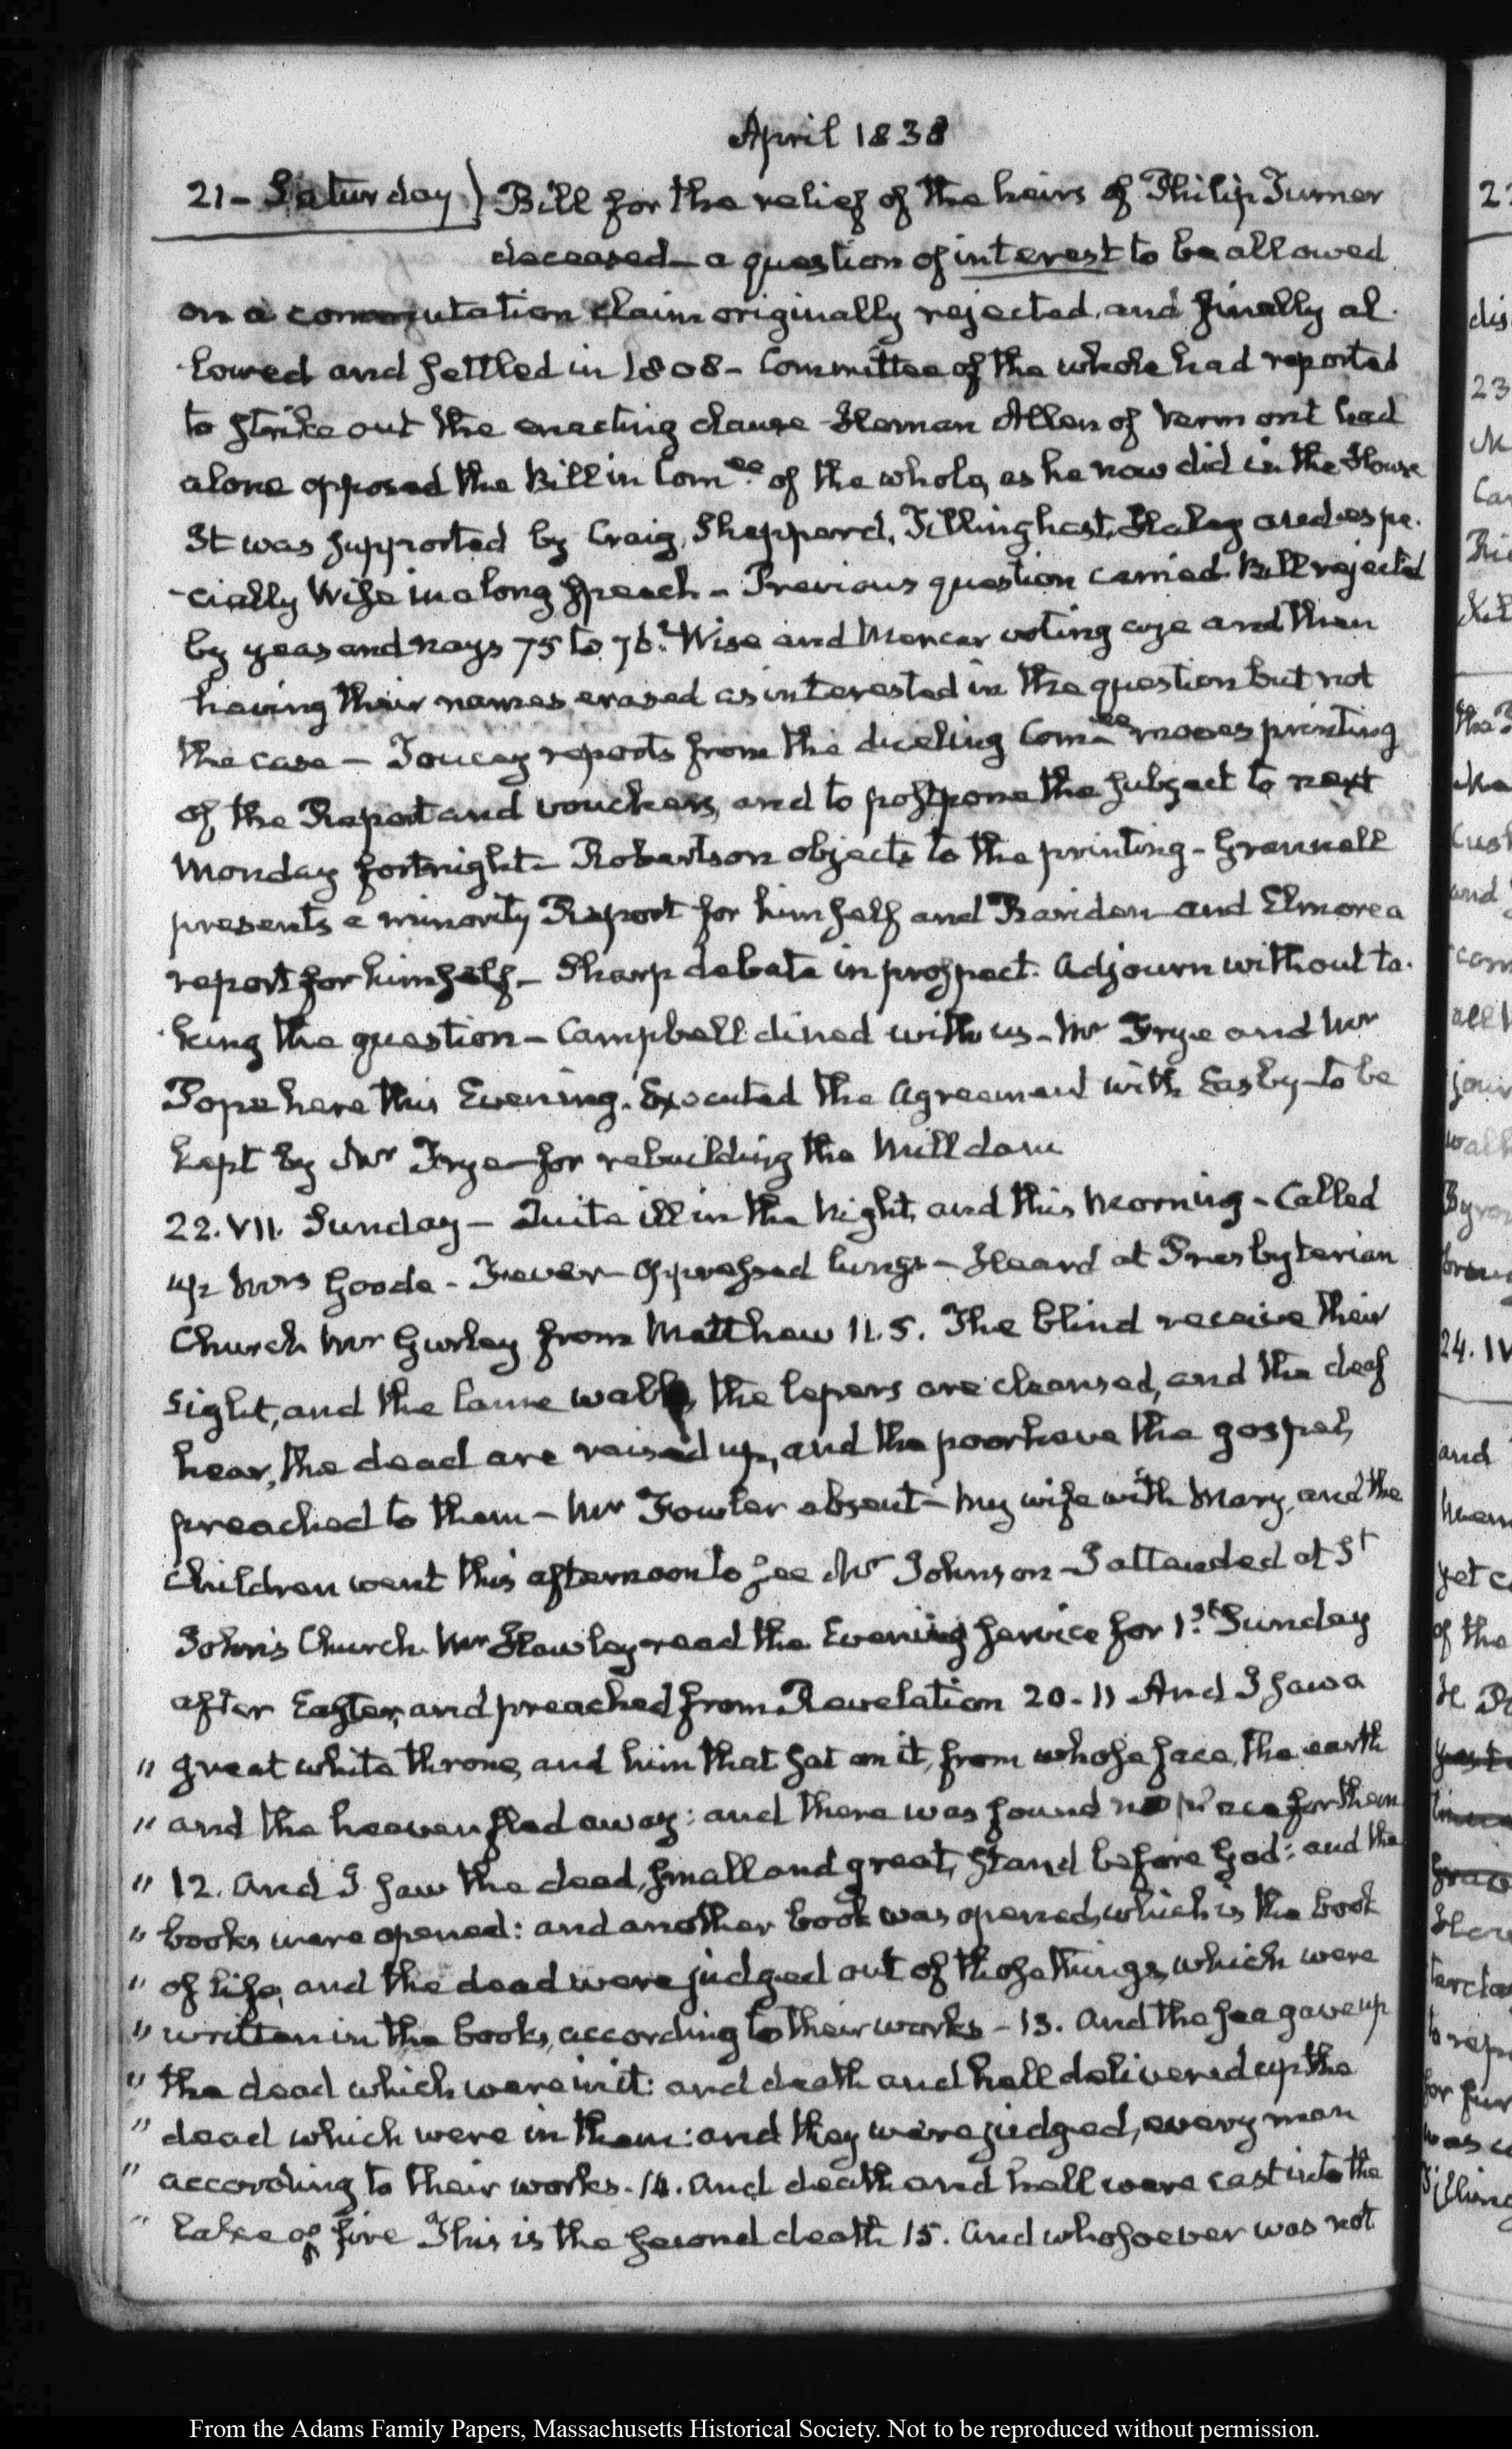 April 1838
21 - Saturday) Bill for the relief of the heirs of Philip Turner
deceased - a question of interest to be allowed
on a commutation claim originally rejected, and finally al-
-lowed and settled in 1808 - Committee of the whole had reported
to strike out the enacting clause Heman Allen of Vermont had
alone opposed the Bill in Com.ee of the whole, as he now did in the House
It was supported by Craig, Sheppard, Tillinghast, Haley and espe-
-cially Wise in a long speech - Previous question carried. Bill rejected
by yeas and nays 75 to 76. Wise and Mercer voting aye and then
having their names erased as interested in the question but not
the case - Toucey reports from the dueling Com.ee moves printing
of the Report and vouchers, and to postpone the subject to next
Monday fortnight - Robertson objects to the printing - Grennell
presents a minority Report for himself and Rariden and Elmore a
report for himself - Sharp debate in prospect. Adjourn without ta-
-king the question - Campbell dined with us - Mr Frye and Mr
Pope here this Evening. Executed the Agreement with Easby - to be
kept by Mr Frye - for rebuilding the Mill dam
22. VII. Sunday - Quite ill in the Night, and this Morning - Called
up Mrs Goods - Fever - Oppressed lungs - Heard at Presbyterian
Church Mr Gurley from Matthew 11. 5. The blind receive their
sight, and the lame walk, the lepers are cleansed, and the deaf
hear, the dead are raised up, and the poor have the gospel,
preached to them - Mr Fowler absent - My wife with Mary, and the
children went this afternoon to see Mr Johnson - I attended at St
John's Church. Mr Hawley read the Evening service for 1.st Sunday
after Easter, and preached from Revelation 20 - 11 And I saw a
" great white throne, and him that sat on it, from whose face, the earth
" and the heaven fled away: and there was found no place for them
" 12. And I saw the dead, small and great, stand before God: and the
" books were opened: and another book was opened, which is the book
" of life, and the dead were judged out of those things, which were
" written in the books, according to their works - 13. And the sea gave up
" the dead which were in it: and death and hell delivered up the
" dead which were in them: and they were judged, every man
" according to their works. 14. And death and hell were cast into the
" lake of fire This is the second death 15. And whosoever was not
From the Adams Family Papers, Massachusetts Historical Society. Not to be reproduced without permission.